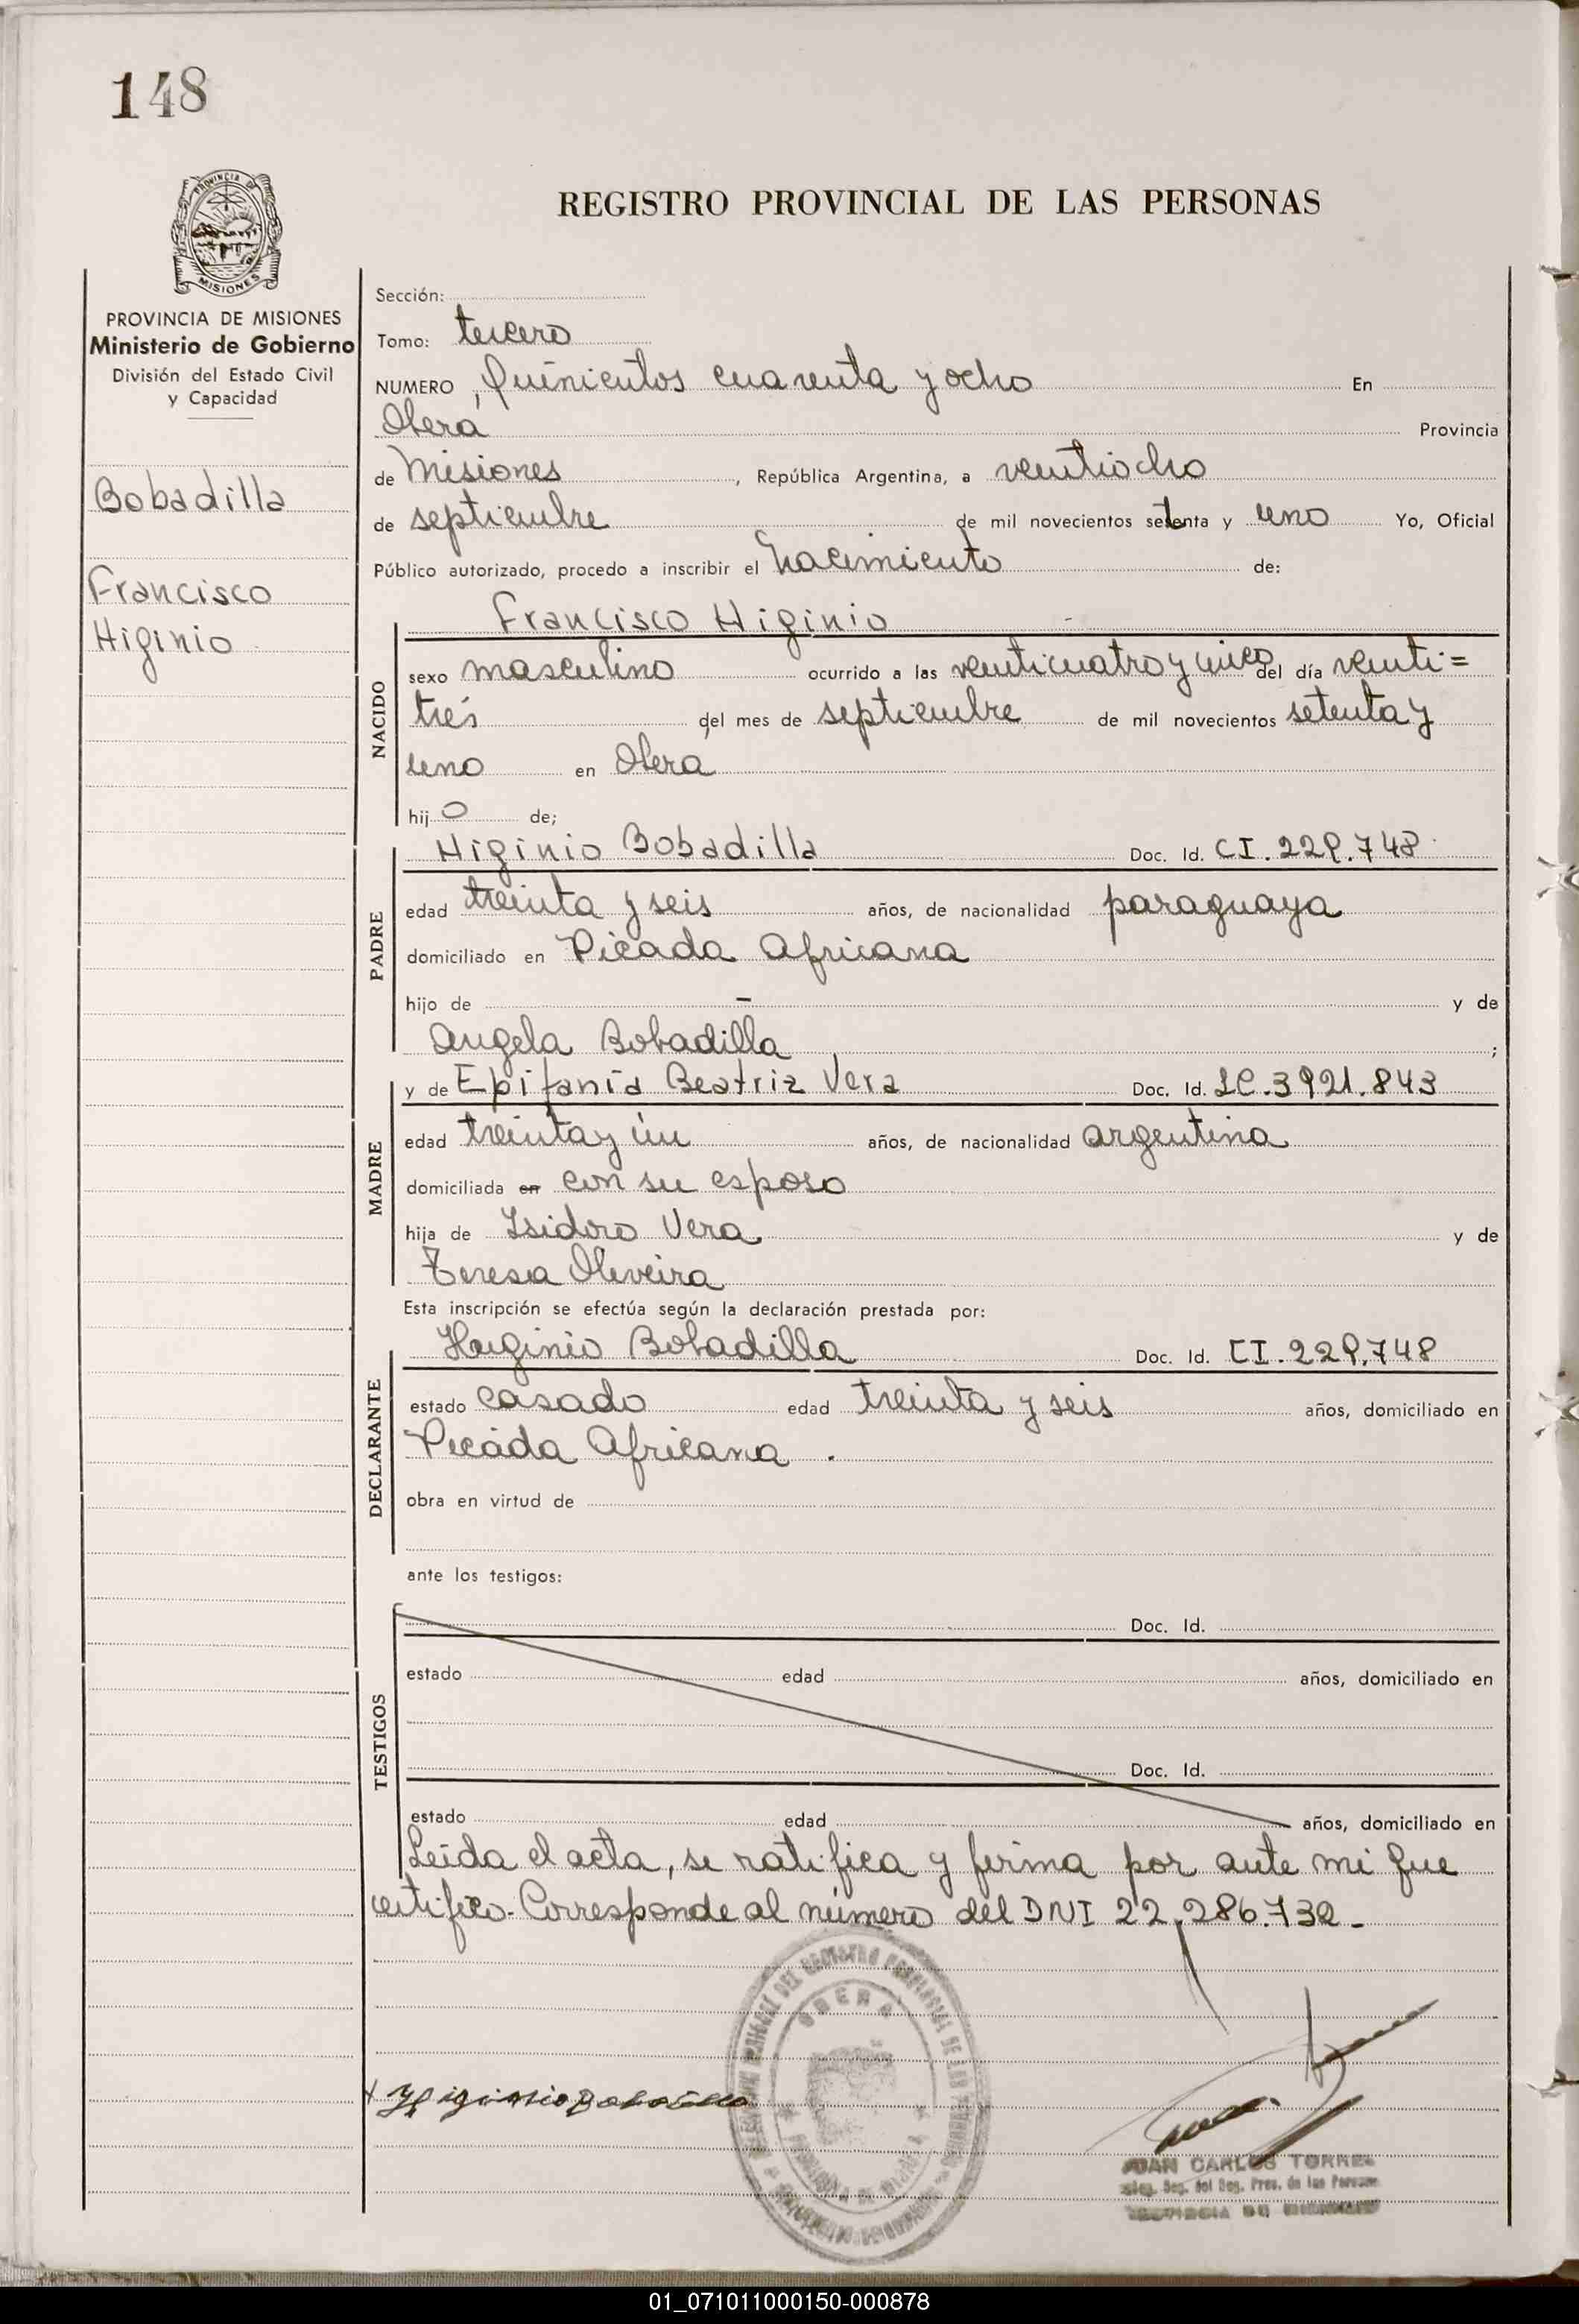 148
REGISTRO PROVINCIAL DE LAS PERSONAS
PROVINCIA DE MISIONES
Ministerio de Gobierno
División del Estado Civil
y Capacidad
Bobadilla
Francisco
Higinio
Sección:
Tomo: tercero
NUMERO, Quinientos cuarenta y ocho En
Oberá Provincia
de Misiones, República Argentina, a ventiocho
de septiembre de mil novecientos setenta y uno Yo, Oficial
Público autorizado, procedo a inscribir el Nacimiento de:
NACIDO
Francisco Higinio
sexo masculino ocurrido a las venticuatro y cinco del día venti=
trés del mes de septiembre de mil novecientos setenta y
uno en Oberá
hijo de;
PADRE
Higinio Bobadilla Doc. Id. CI. 229.748
edad treinta y seis años, de nacionalidad paraguaya
domiciliado en Picada Africana
hijo de - y de
Angela Bobadilla ;
MADRE
y de Epifania Beatriz Vera Doc. Id. LC.3921.843
edad treinta y ún años, de nacionalidad argentina
domiciliada en con su esposo
hija de Isidoro Vera y de
Teresa Oliveira
Esta inscripción se efectúa según la declaración prestada por:
DECLARANTE
Higinio Bobadilla Doc. Id. CI. 229.748
estado casado edad treinta y seis años, domiciliado en
Picada Africana .
obra en virtud de
ante los testigos:
TESTIGOS
Doc. Id.
estado edad años, domiciliado en
Doc. Id.
estado edad años, domiciliado en
Leida el acta, se ratifica y firma por ante mi que
certifico. Corresponde al número del DNI 22.286.732.-
Higinio Bobadilla
OBERA
JUAN CARLOS TORRES
PROVINCIA DE MISIONES
01_071011000150-000878